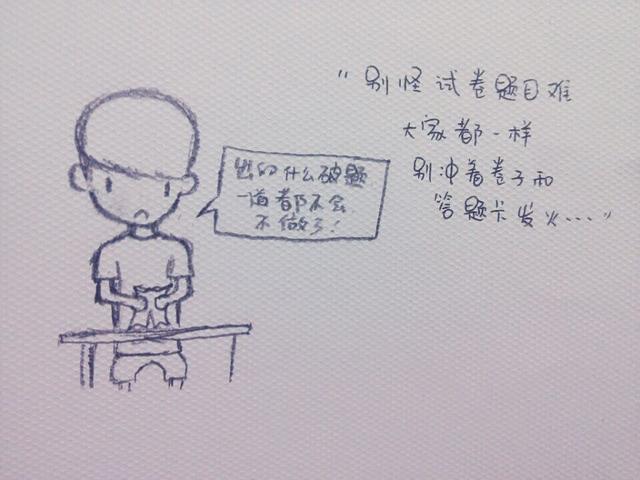 出的什么破题
一道都不会
不做了！
"别怪试卷题目难
大家都一样
别冲着卷子和
答题卡发火....."